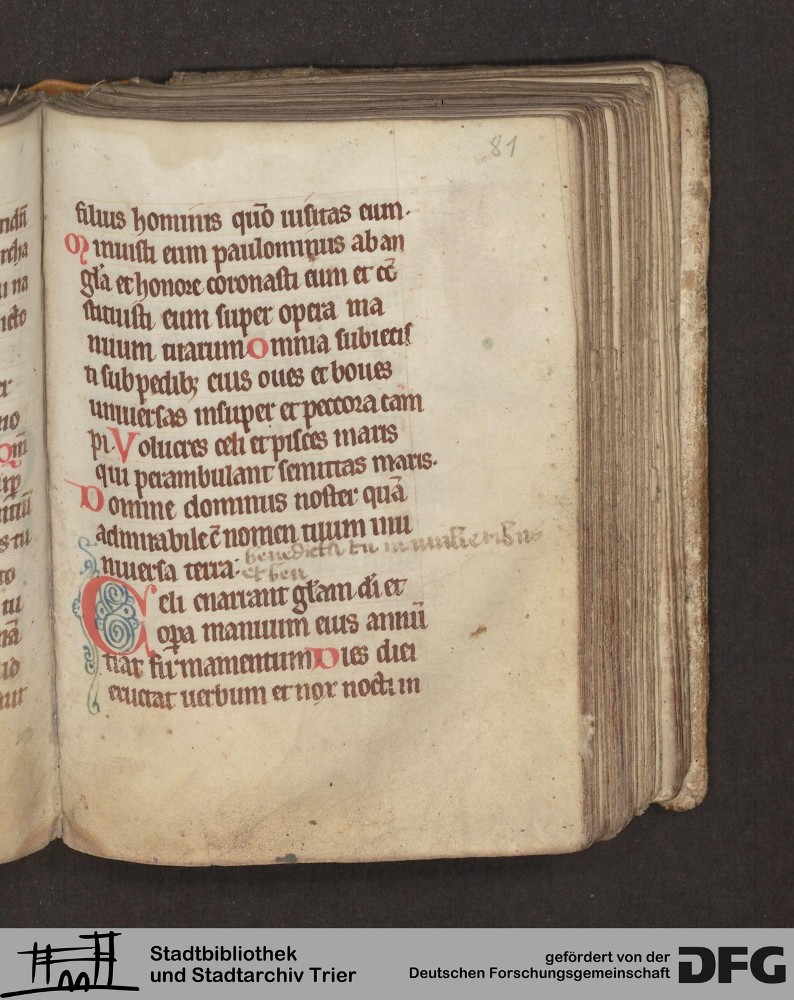 81
filius hominis qũo uisitas eum.
Minuisti eum paulominus ab an
gl̃a et honore coronasti eum et cõ
stituisti eum super opera ma
nuum tuarum Omnia subiecis
ti sub pedibꝫ eius oues et boues
uniuersas insuper et peccora cam
pi Volucres celi et pisces maris
qui perambulant semitas maris.
Domine dominus noster quã
admirabile ẽ nomen tuum in u
niuersa terra: benedicta tu in mulieribus
et ben
Celi enarrant gl̃am dĩ et
opa manuum eius annũ
tiat firmamentum Dies diei
eructat uerbum et nox nocti in
Stadtbibliothek
und Stadtarchiv Trier
gefördert von der
Deutschen Forschungsgemeinschaft
DFG